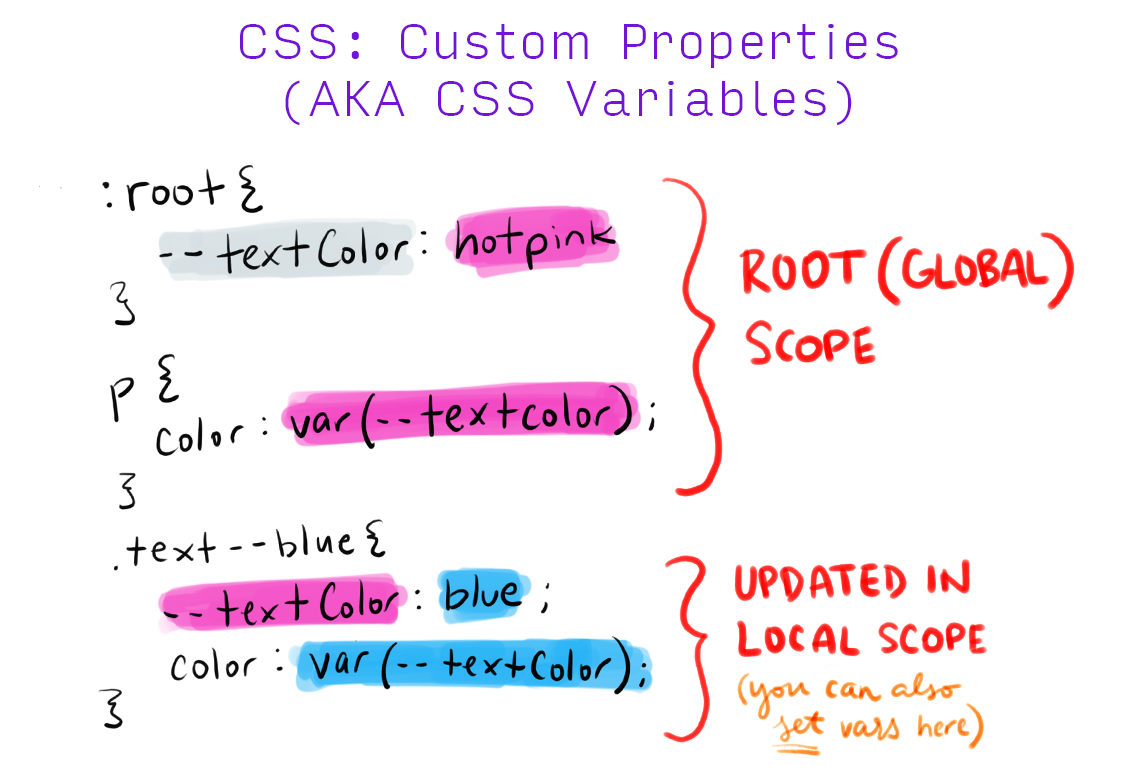 CSS: Custom Properties
(AKA CSS Variables)
:root {
--textColor: hotpink
}
p {
color: var(--textcolor);
}
.text--blue {
--textColor: blue;
color: var(--textColor);
}
ROOT (GLOBAL)
SCOPE
UPDATED IN
LOCAL SCOPE
(you can also
set vars here)